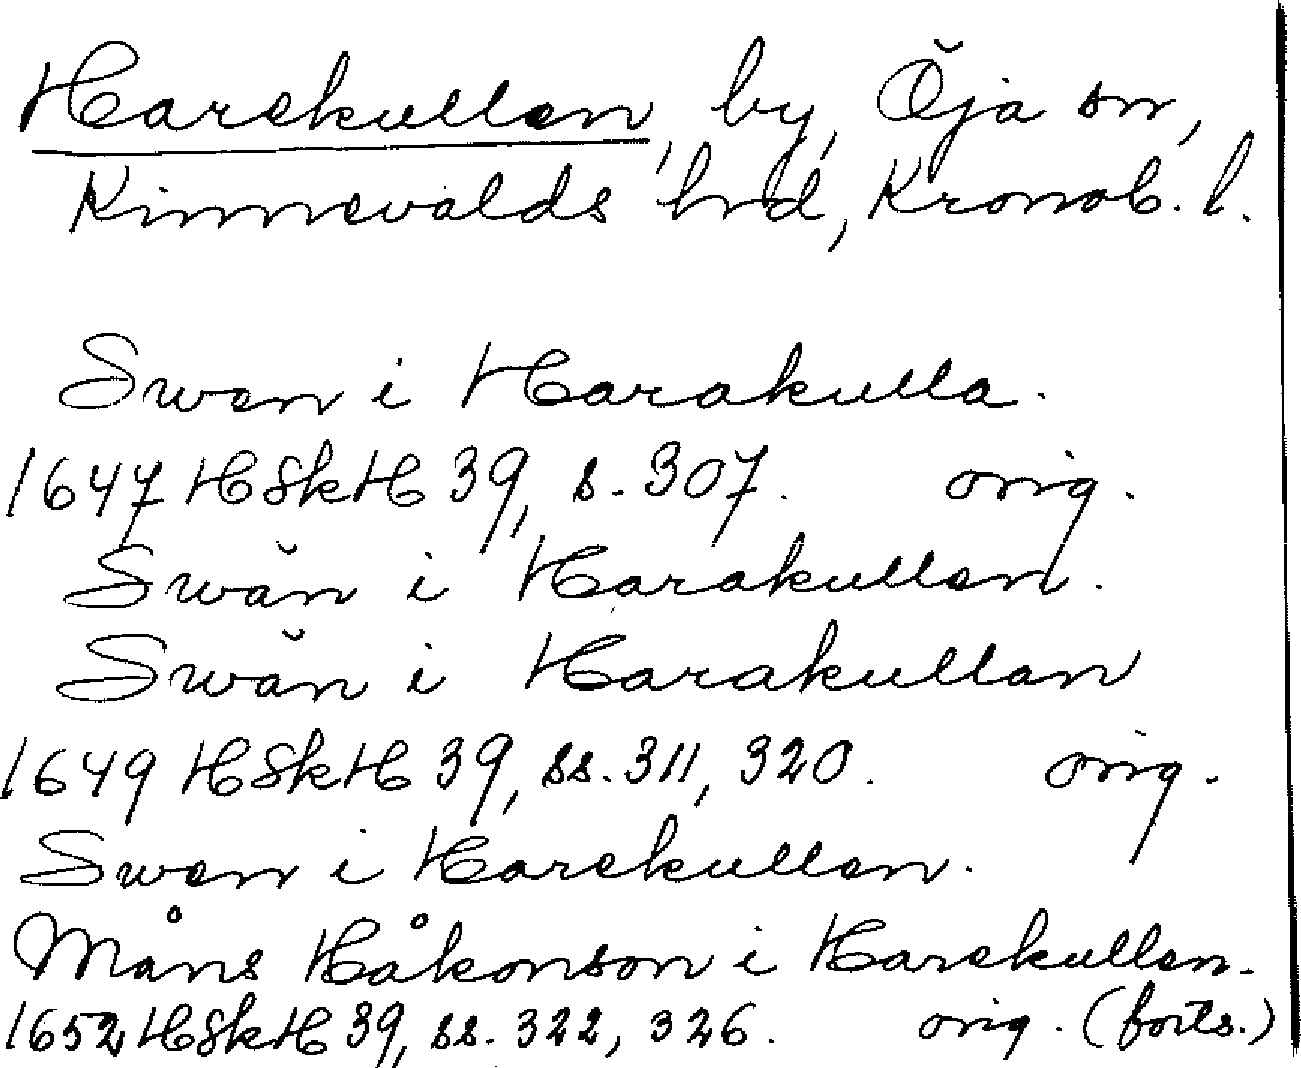 Harekullen, by, Öja sn,
Kinnevalds hrd, Kronob. l.
Swen i Harakulla.
1647 HSkH 39, s. 307. orig.
Swän i Harakullen.
Swän i Harakullan
1649 HSkH 39, ss. 311, 320. orig.
Swen i Harekullen.
Måns Håkonson i Harekullen.
1652 HSkH 39, ss. 322, 326. orig. (forts.)